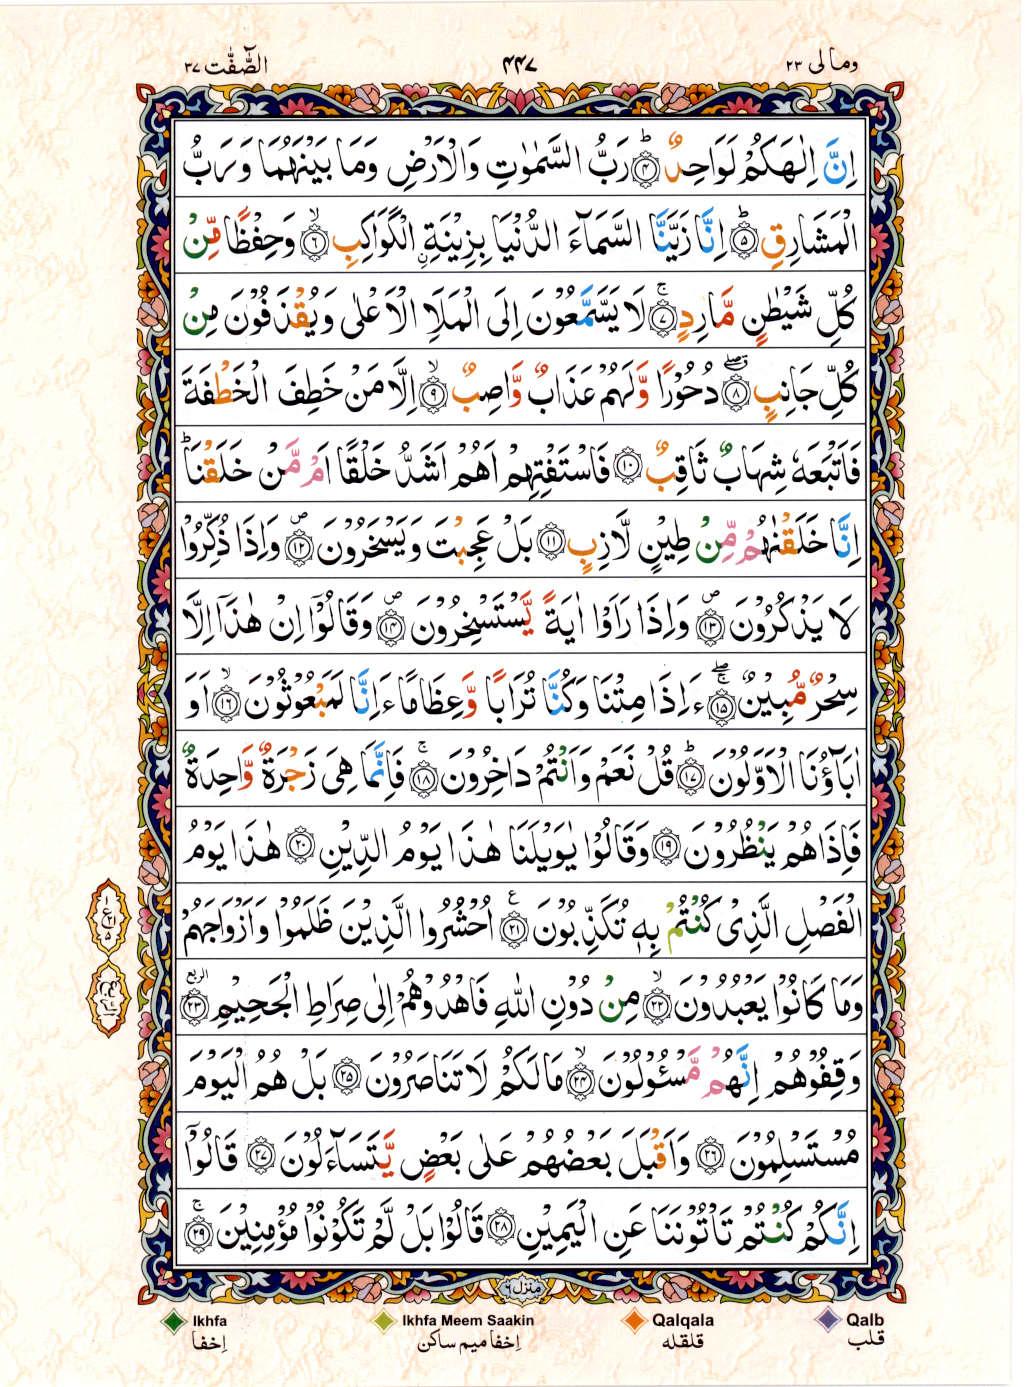 وما لی ۲۳
۴۴۷
الصّٰٓفّٰت ۳۷
اِنَّ اِلٰهَكُمْ لَوَاحِدٌ ؕ﴿۴﴾ رَبُّ السَّمٰوٰتِ وَالْاَرْضِ وَمَا بَيْنَهُمَا وَرَبُّ
الْمَشَارِقِ ؕ﴿۵﴾ اِنَّا زَيَّنَّا السَّمَآءَ الدُّنْيَا بِزِيْنَةِ ۨالْكَوَاكِبِ ۙ﴿۶﴾ وَحِفْظًا مِّنْ
كُلِّ شَيْطٰنٍ مَّارِدٍ ۚ﴿۷﴾ لَا يَسَّمَّعُوْنَ اِلَى الْمَلَاِ الْاَعْلٰى وَيُقْذَفُوْنَ مِنْ
كُلِّ جَانِبٍ ۖق﴿۸﴾ دُحُوْرًا وَّلَهُمْ عَذَابٌ وَّاصِبٌ ۙ﴿۹﴾ اِلَّا مَنْ خَطِفَ الْخَطْفَةَ
فَاَتْبَعَهٗ شِهَابٌ ثَاقِبٌ ﴿۱۰﴾ فَاسْتَفْتِهِمْ اَهُمْ اَشَدُّ خَلْقًا اَمْ مَّنْ خَلَقْنَا ؕ
اِنَّا خَلَقْنٰهُمْ مِّنْ طِيْنٍ لَّازِبٍ ﴿۱۱﴾ بَلْ عَجِبْتَ وَيَسْخَرُوْنَ ۪﴿۱۲﴾ وَاِذَا ذُكِّرُوْا
لَا يَذْكُرُوْنَ ۪﴿۱۳﴾ وَاِذَا رَاَوْا اٰيَةً يَّسْتَسْخِرُوْنَ ۪﴿۱۴﴾ وَقَالُوْٓا اِنْ هٰذَآ اِلَّا
سِحْرٌ مُّبِيْنٌ ۚۖ﴿۱۵﴾ ءَاِذَا مِتْنَا وَكُنَّا تُرَابًا وَّعِظَامًا ءَاِنَّا لَمَبْعُوْثُوْنَ ۙ﴿۱۶﴾ اَوَ
اٰبَآؤُنَا الْاَوَّلُوْنَ ؕ﴿۱۷﴾ قُلْ نَعَمْ وَاَنْتُمْ دَاخِرُوْنَ ۚ﴿۱۸﴾ فَاِنَّمَا هِىَ زَجْرَةٌ وَّاحِدَةٌ
فَاِذَا هُمْ يَنْظُرُوْنَ ﴿۱۹﴾ وَقَالُوْا يٰوَيْلَنَا هٰذَا يَوْمُ الدِّيْنِ ﴿۲۰﴾ هٰذَا يَوْمُ
الْفَصْلِ الَّذِىْ كُنْتُمْ بِهٖ تُكَذِّبُوْنَ ﴿۲۱﴾ ع اُحْشُرُوا الَّذِيْنَ ظَلَمُوْا وَاَزْوَاجَهُمْ
وَمَا كَانُوْا يَعْبُدُوْنَ ۙ﴿۲۲﴾ مِنْ دُوْنِ اللّٰهِ فَاهْدُوْهُمْ اِلٰى صِرَاطِ الْجَحِيْمِ ﴿۲۳﴾ الربع
وَقِفُوْهُمْ اِنَّهُمْ مَّسْـُٔوْلُوْنَ ۙ﴿۲۴﴾ مَا لَكُمْ لَا تَنَاصَرُوْنَ ﴿۲۵﴾ بَلْ هُمُ الْيَوْمَ
مُسْتَسْلِمُوْنَ ﴿۲۶﴾ وَاَقْبَلَ بَعْضُهُمْ عَلٰى بَعْضٍ يَّتَسَآءَلُوْنَ ﴿۲۷﴾ قَالُوْٓا
اِنَّكُمْ كُنْتُمْ تَاْتُوْنَنَا عَنِ الْيَمِيْنِ ﴿۲۸﴾ قَالُوْا بَلْ لَّمْ تَكُوْنُوْا مُؤْمِنِيْنَ ۚ﴿۲۹﴾
منزل ۶
Ikhfa
Ikhfa Meem Saakin
Qalqala
Qalb
اِخفا
اِخفا میم ساکن
قلقله
قلب